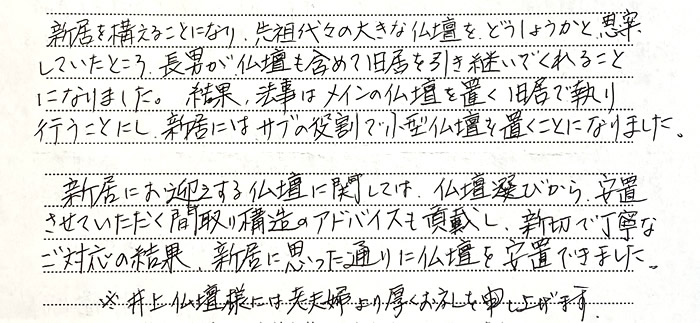 新居を構えることになり、先祖代々の大きな仏壇を、どうしょうかと、思案
していたところ、長男が、仏壇も含めて旧居を引き継いでくれること
になりました。結果、法事はメインの仏壇を置く旧居で執り
行うことにし、新居にはサブの役割で小型仏壇を置くことになりました。
新居にお迎えする仏壇に関しては、仏壇選びから、安置
させていただく間取り構造のアドバイスも頂戴し、新切で丁寧な
ご対応の結果、新居に思った通りに仏壇を安置できました。
※井上仏壇様には老夫婦より厚くお礼を申し上げます。